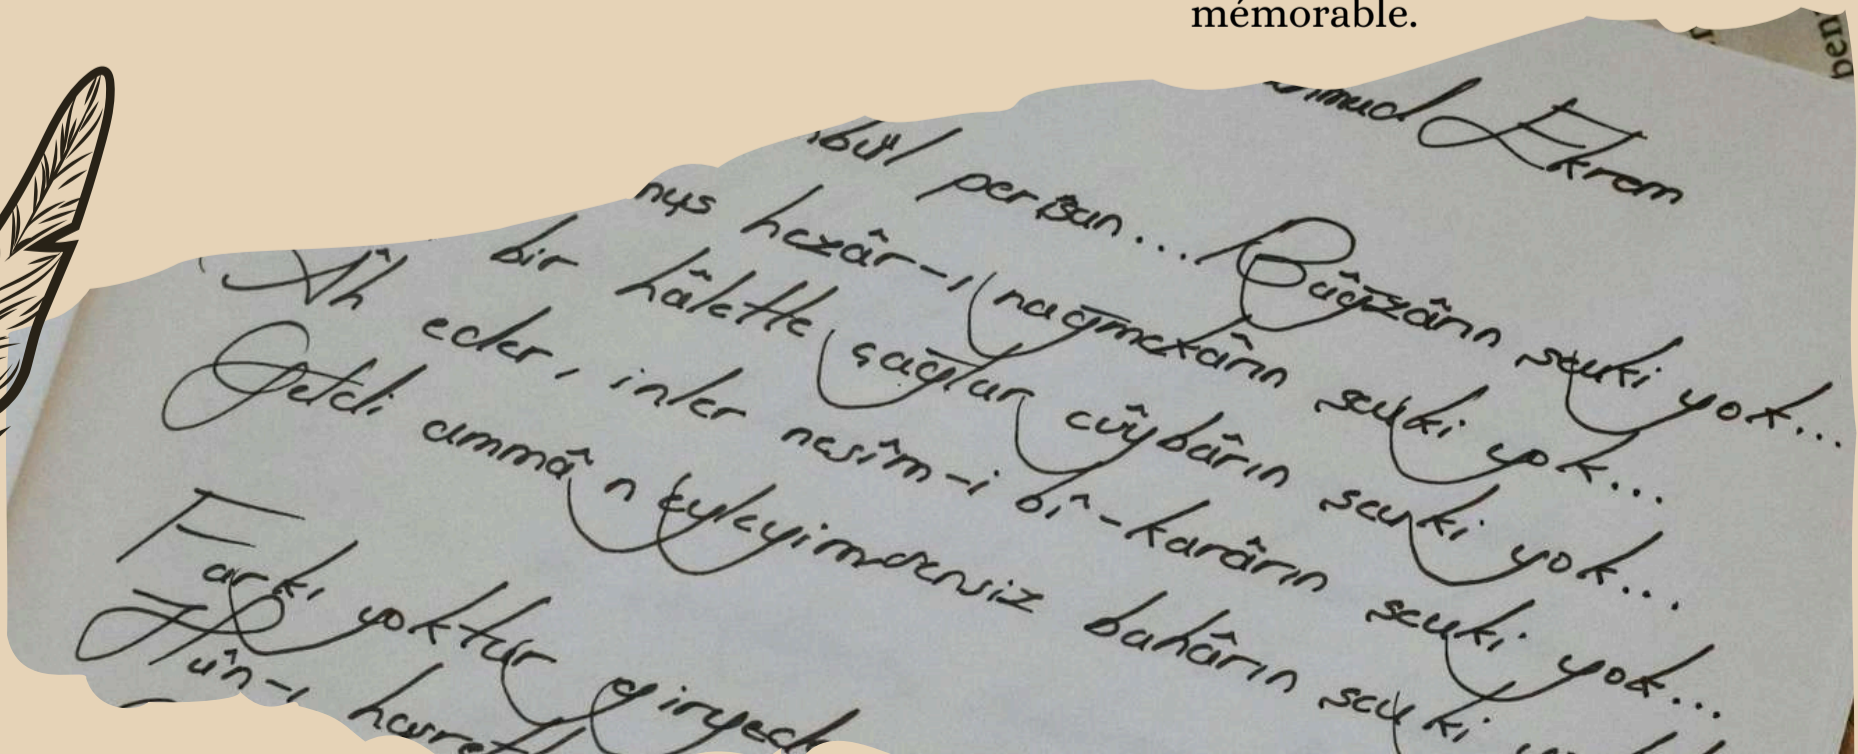 mémorable.
Ekrem
perîşan... Bâğzârın şevki yok...
hezâr-ı nağmekârın şevki yok...
bir hâlette çağlar cûybârın şevki yok...
Âh eder, inler nesîm-i bî-karârın şevki yok...
Geldi ammâ n'eyleyim sensiz bahârın şevki
Farkı yoktur
Hûn-ı